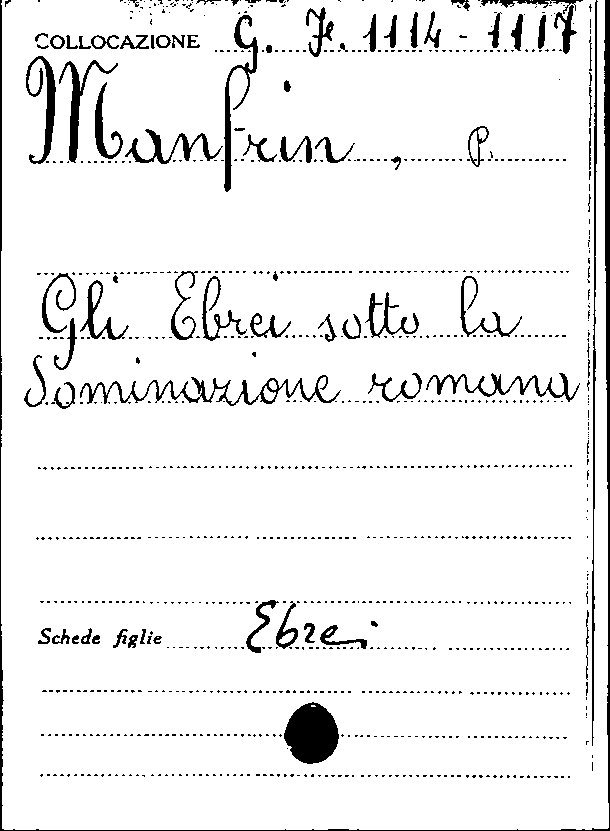 COLLOCAZIONE G. Je. 1114 - 1117
Manfrin, P.
Gli Ebrei sotto la
dominazione romana
Schede figlie Ebrei